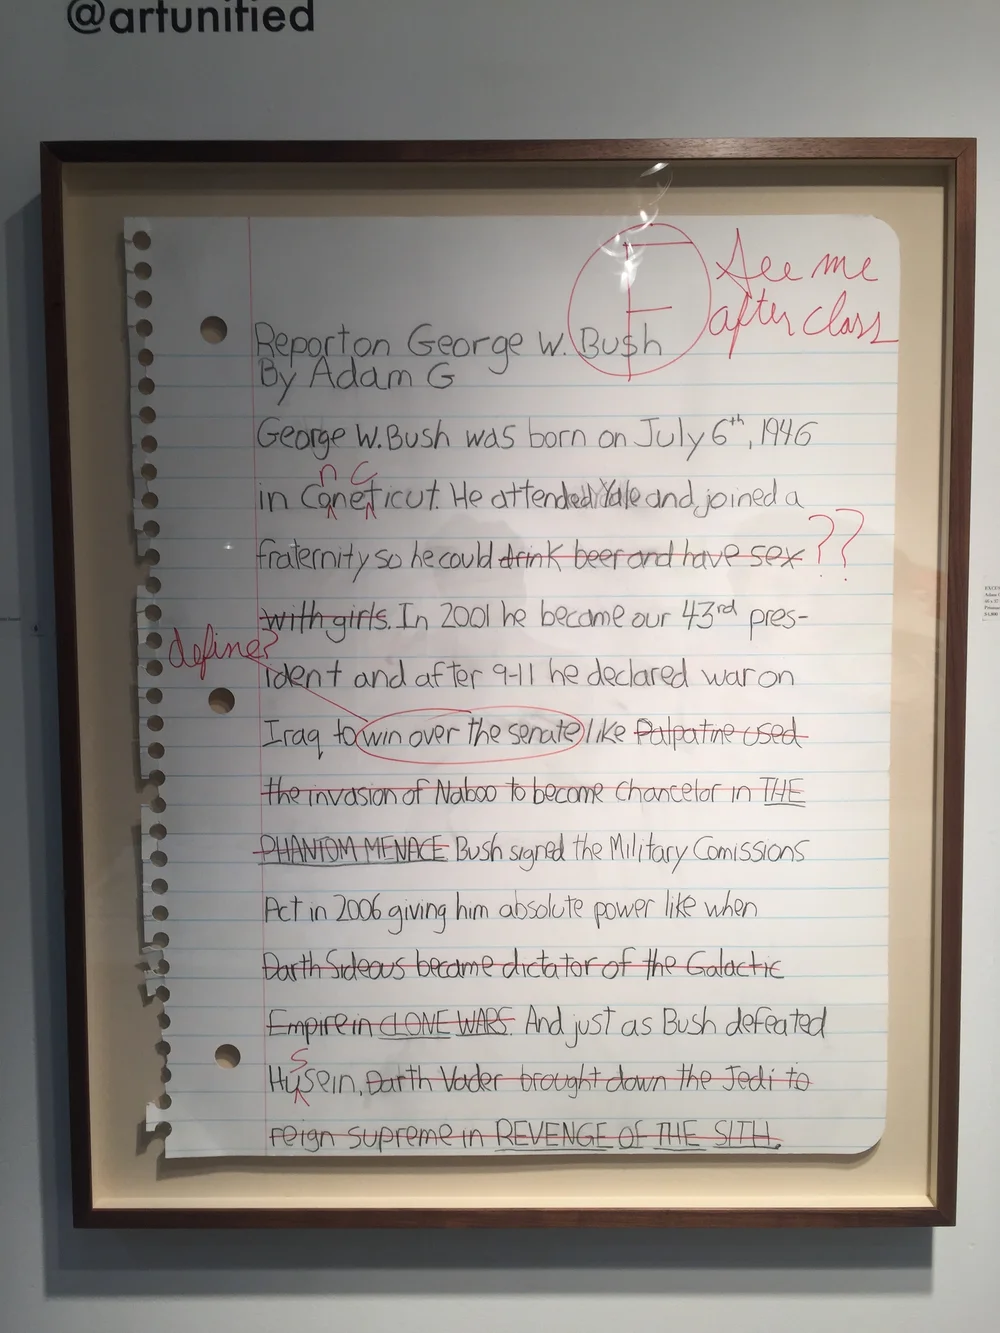 @artunified
F
See me
after class
Report on George W. Bush
By Adam G
George W. Bush was born on July 6th, 1946
n C
in Coneticut. He attended Yale and joined a
fraternity so he could drink beer and have sex ??
with girls. In 2001 he became our 43rd pres-
define?
ident and after 9-11 he declared war on
Iraq to win over the senate like Palpatine used
the invasion of Naboo to become Chancelor in THE
PHANTOM MENACE Bush signed the Military Comissions
Act in 2006 giving him absolute power like when
Darth Sideous became dictator of the Galactic
Empire in CLONE WARS. And just as Bush defeated
S
Husein, Darth Vader brought down the Jedi to
reign supreme in REVENGE OF THE SITH.